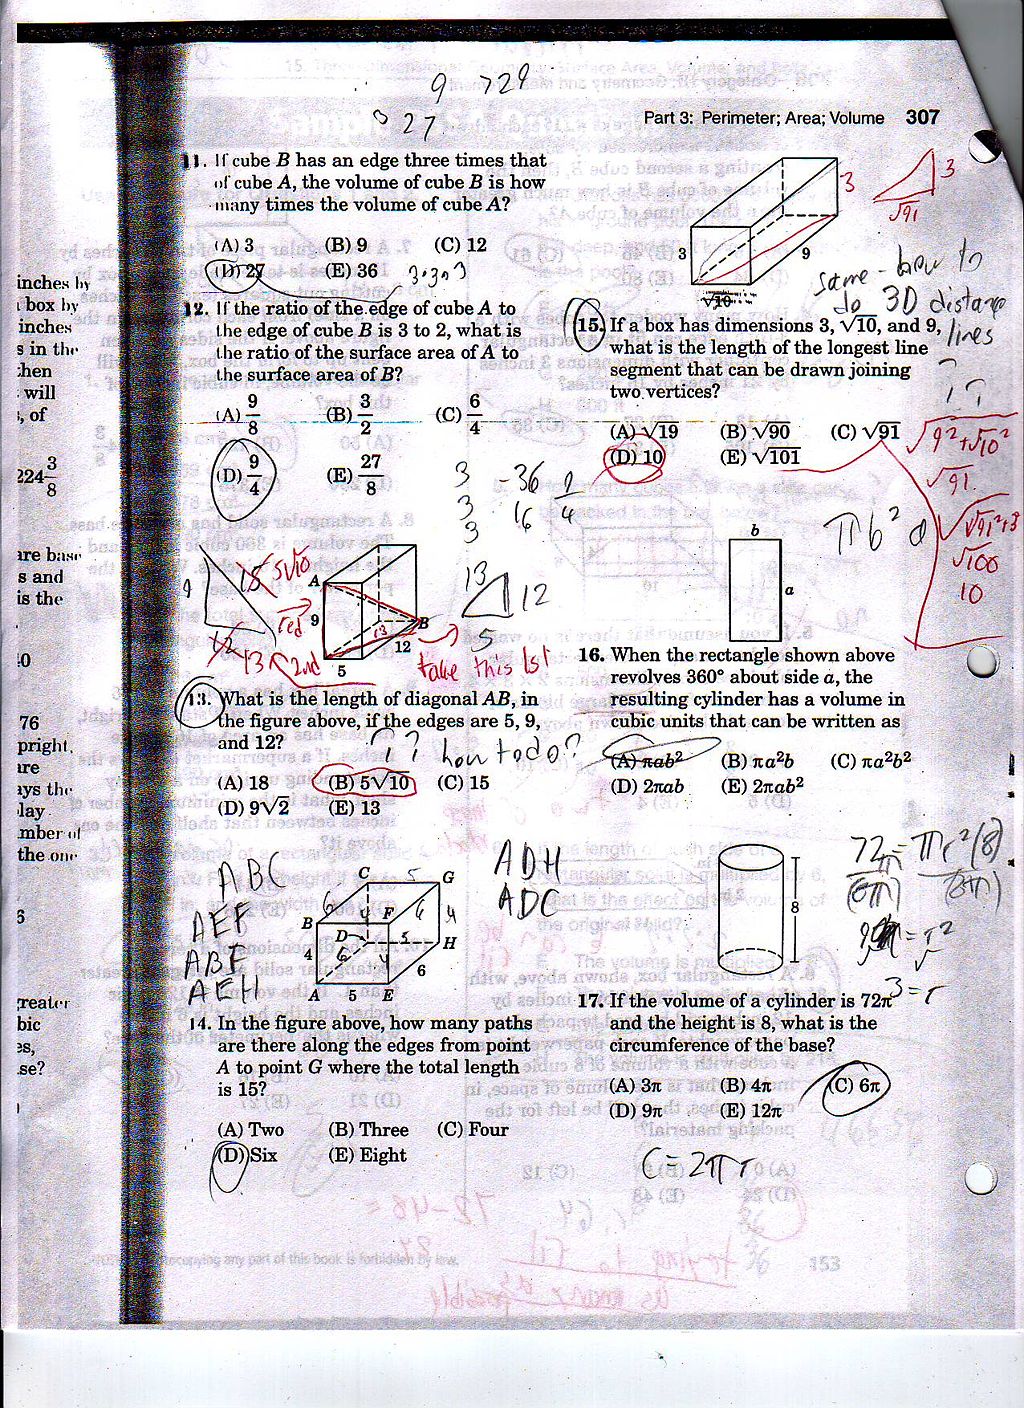 9 729
3 27
Part 3: Perimeter; Area; Volume 307
11. If cube B has an edge three times that
of cube A, the volume of cube B is how
many times the volume of cube A?
(A) 3 (B) 9 (C) 12
(D) 27 (E) 36
3·3·3
12. If the ratio of the edge of cube A to
the edge of cube B is 3 to 2, what is
the ratio of the surface area of A to
the surface area of B?
(A) 9/8 (B) 3/2 (C) 6/4
(D) 9/4 (E) 27/8
3 -36 9/4
3 16
3
9
15 5√10
red
12
13 2nd
A
9
5
13
12
B
13
12
5
take this 1st
13. What is the length of diagonal AB, in
the figure above, if the edges are 5, 9,
and 12?
? ? how to do?
(A) 18 (B) 5√10 (C) 15
(D) 9√2 (E) 13
ABC
AEF
ABF
AEH
ADH
ADC
C 5 G
6 4 F 6 4
B D 5 H
4 6 4 6
A 5 E
14. In the figure above, how many paths
are there along the edges from point
A to point G where the total length
is 15?
(A) Two (B) Three (C) Four
(D) Six (E) Eight
3
3
9
√10
3
√91
same - how to
do 3D distance
lines
? ?
15. If a box has dimensions 3, √10, and 9,
what is the length of the longest line
segment that can be drawn joining
two vertices?
(A) √19 (B) √90 (C) √91
(D) 10 (E) √101
√9²+√10²
√91
√√91²+3²
√100
10
πb²a
b
a
16. When the rectangle shown above
revolves 360° about side a, the
resulting cylinder has a volume in
cubic units that can be written as
(A) πab² (B) πa²b (C) πa²b²
(D) 2πab (E) 2πab²
8
72π = πr²(8)
(8π) (8π)
9 = r²
3 = r
17. If the volume of a cylinder is 72π
and the height is 8, what is the
circumference of the base?
(A) 3π (B) 4π (C) 6π
(D) 9π (E) 12π
C = 2πr
inches by
box by
inches
s in the
hen
will
, of
224 3/8
are base
s and
is the
76
pright,
are
ays the
lay
mber of
the one
greater
bic
es,
se?
153